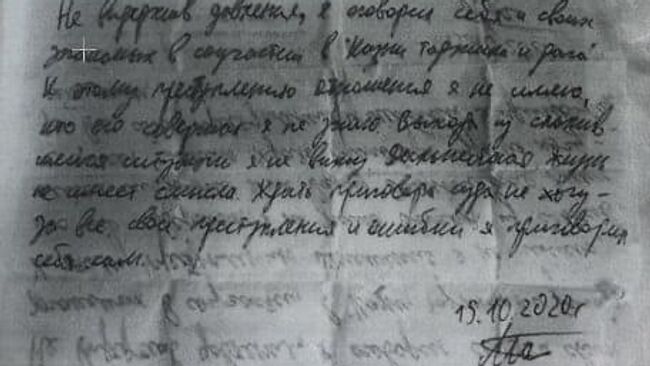 Не выдержав давления, я оговорил себя и своих
знакомых в соучастии в "Казни таджика и дага"
К этому преступлению отношения я не имею,
кто его совершал я не знаю Выхода из сложив-
шейся ситуации я не вижу Дальнейшая жизнь
не имеет смысла. Ждать приговора суда не хочу -
за все свои преступления и ошибки я приговорил
себя сам.
15.10.2020г